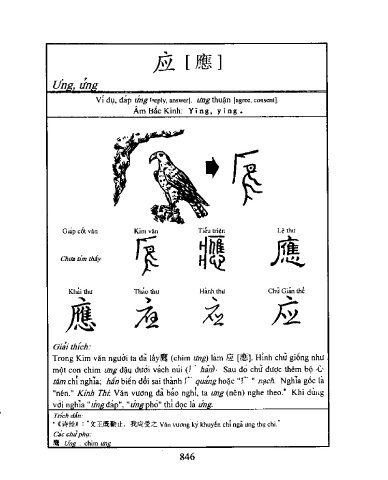 应 [應]
Ưng, ứng
Ví dụ, đáp ứng [reply, answer], ưng thuận [agree, consent].
Âm Bắc Kinh: Yīng, yìng.
Giáp cốt văn Kim văn Tiểu triện Lệ thư
Chưa tìm thấy
應
Khải thư Thảo thư Hành thư Chữ Giản thể
應 应
Giải thích:
Trong Kim văn người ta đã lấy 鷹 (chim ưng) làm 应 [應]. Hình chữ giống như
một con chim ưng đậu dưới vách núi (厂 hán). Sau đó chữ được thêm bộ 心
tâm chỉ nghĩa; hán biến đổi sai thành 广 quảng hoặc "疒" nạch. Nghĩa gốc là
"nên." Kinh Thi: Văn vương đã bảo nghỉ, ta ưng (nên) nghe theo.* Khi dùng
với nghĩa "ứng đáp", "ứng phó" thì đọc là ứng.
Trích dẫn:
*《诗经》: "文王既勤止，我应受之 Văn vương ký khuyến chỉ ngã ưng thụ chi."
Các chữ phụ:
鷹 Ưng : chim ưng
846